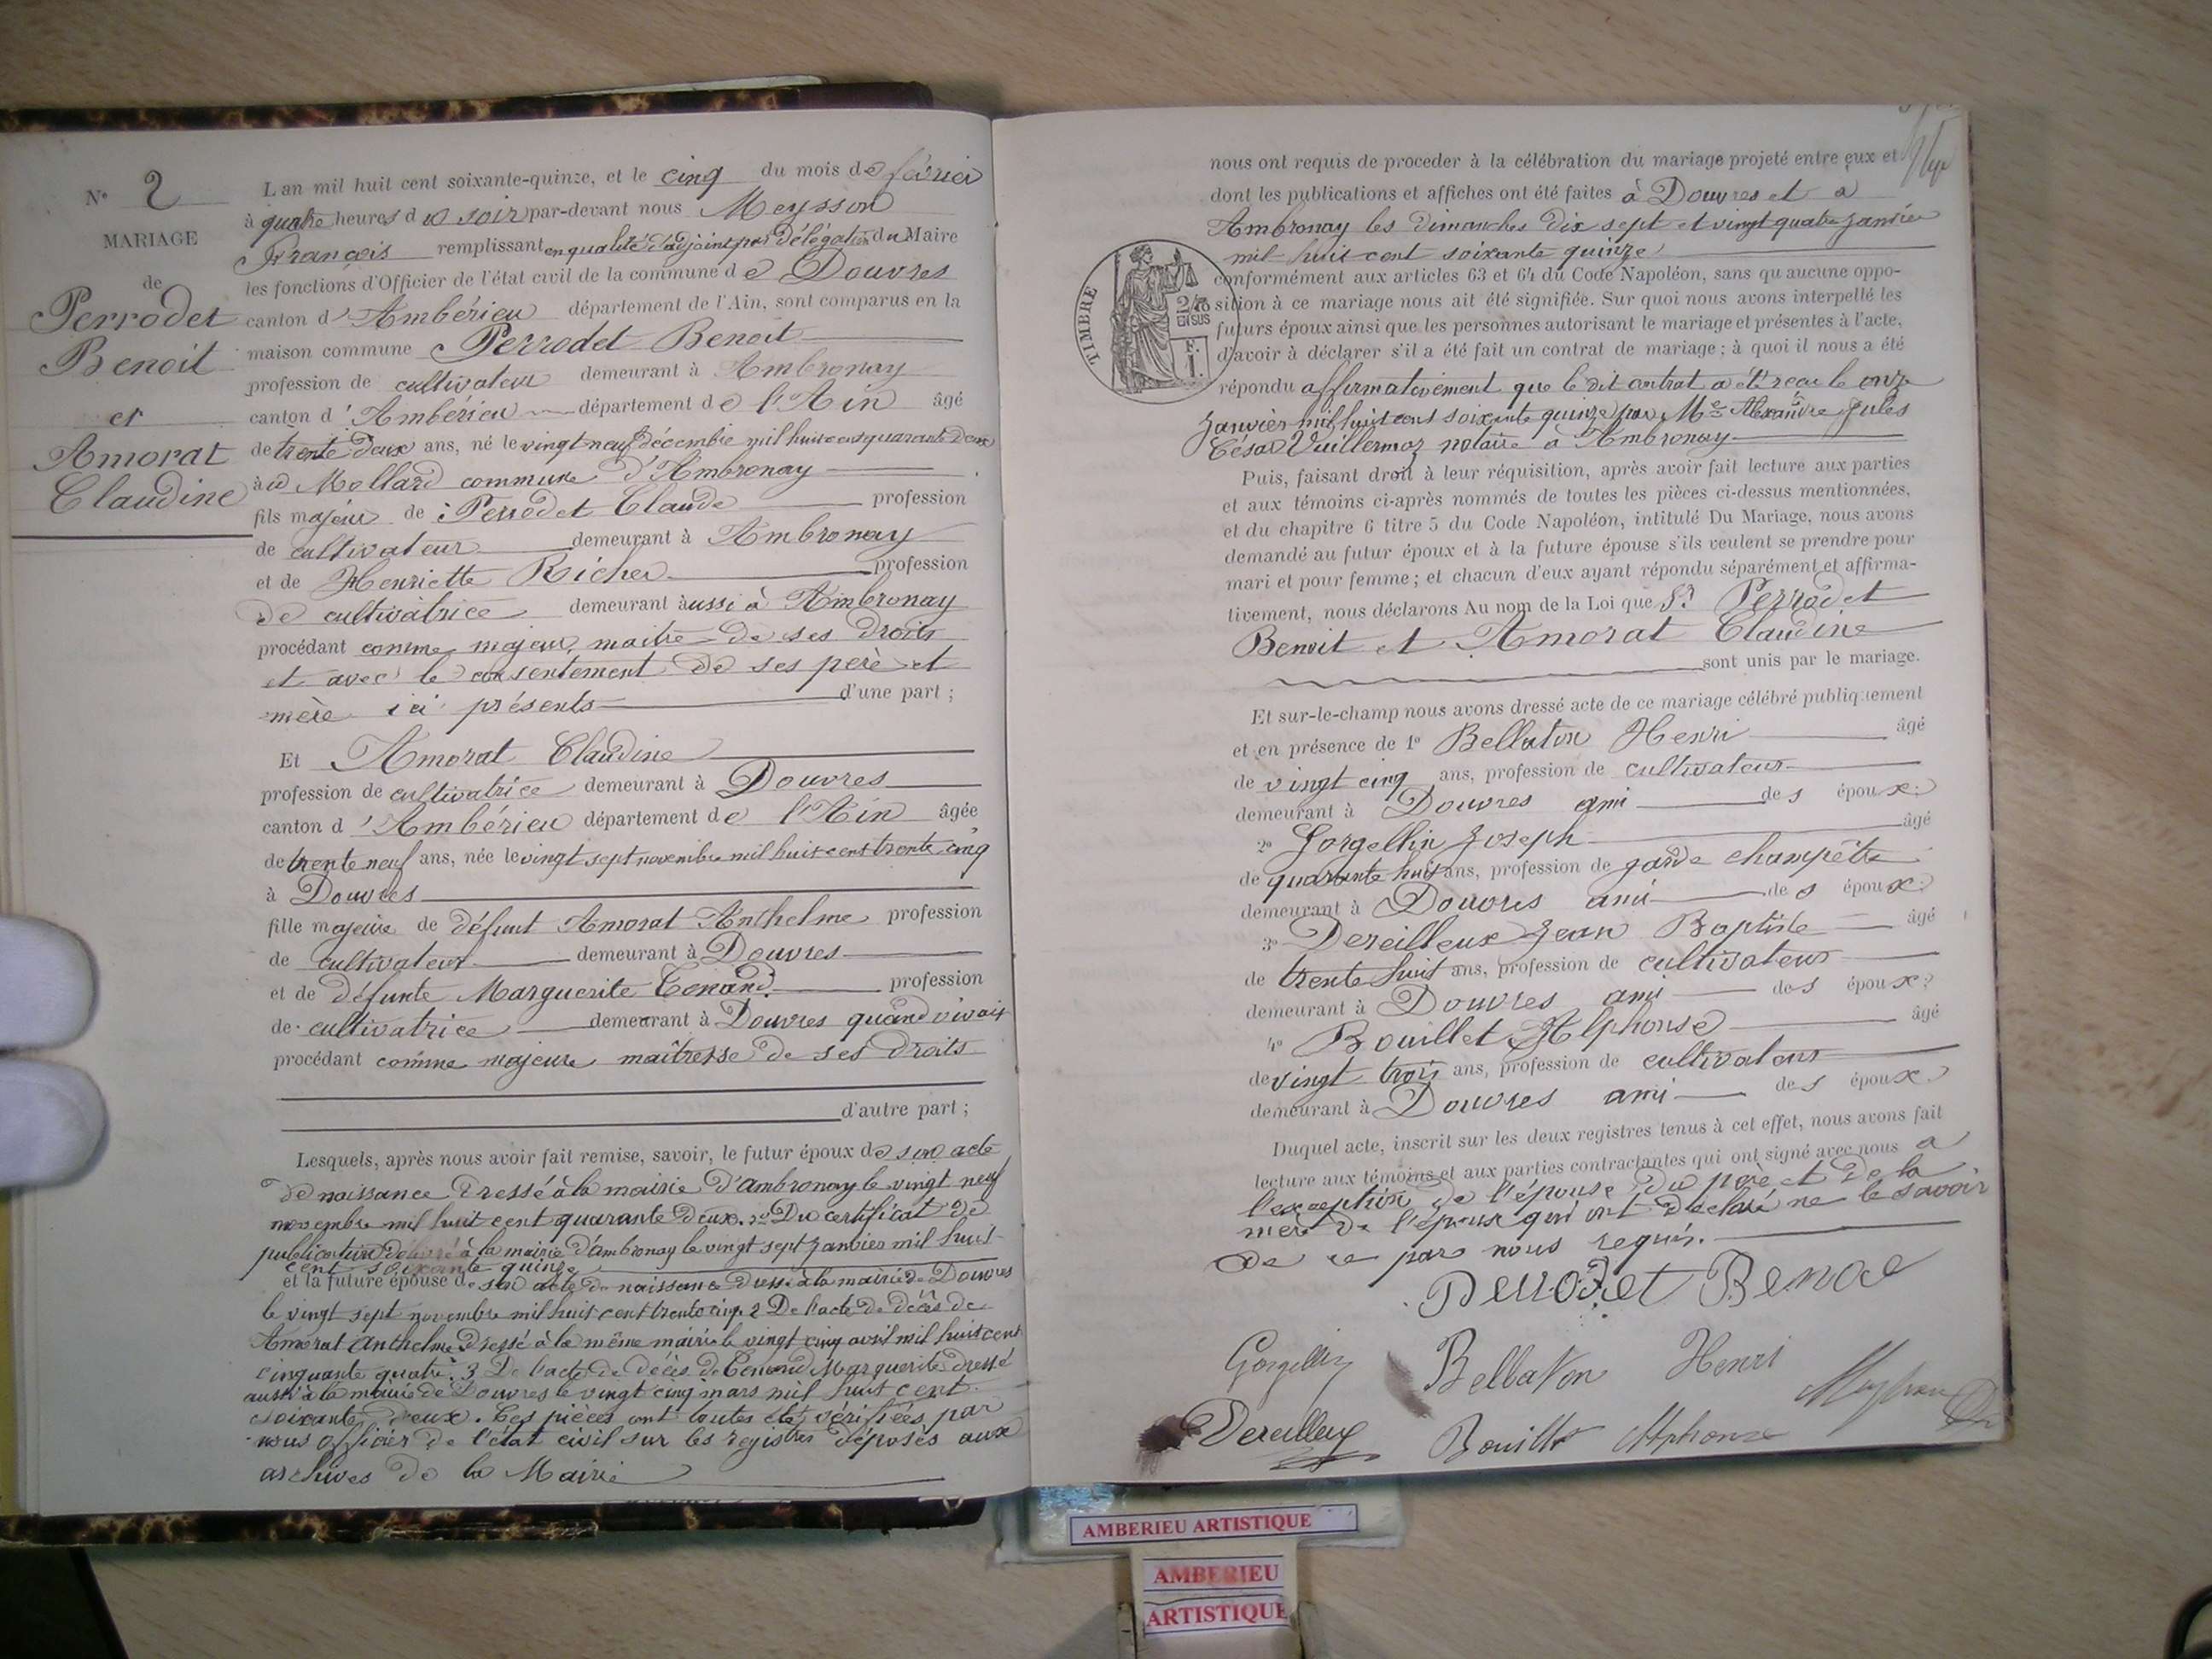 N° 2
MARIAGE
de
Perrodet
Benoit
et
Amorat
Claudine
L an mil huit cent soixante-quinze, et le cinq du mois de février
à quatre heures du soir par-devant nous Meysson
François remplissant en qualité d'adjoint par délégation du Maire
les fonctions d'Officier de l'état civil de la commune de Douvres
canton d'Ambérieu département de l'Ain, sont comparus en la
maison commune Perrodet Benoit
profession de cultivateur demeurant à Ambronay
canton d'Ambérieu département de l'Ain âgé
de trente deux ans, né le vingt neuf décembre mil huit cent quarante deux
à Mollard commune d'Ambronay
fils majeur de Perrodet Claude profession
de cultivateur demeurant à Ambronay
et de Henriette Richer profession
de cultivatrice demeurant aussi à Ambronay
procédant comme majeur, maitre de ses droits
et avec le consentement de ses père et
mère ici présents d'une part ;
Et Amorat Claudine
profession de cultivatrice demeurant à Douvres
canton d'Ambérieu département de l'Ain âgée
de trente neuf ans, née le vingt sept novembre mil huit cent trente cinq
à Douvres
fille majeure de défunt Amorat Anthelme profession
de cultivateur demeurant à Douvres
et de défunte Marguerite Tenand profession
de cultivatrice demeurant à Douvres quand vivait
procédant comme majeure maîtresse de ses droits
d'autre part ;
Lesquels, après nous avoir fait remise, savoir, le futur époux de son acte
de naissance dressé à la mairie d'Ambronay le vingt neuf
novembre mil huit cent quarante deux. 2° Du certificat de
publication délivré à la mairie d'Ambronay le vingt sept janvier mil huit
cent soixante quinze
et la future épouse de son acte de naissance dressé à la mairie de Douvres
le vingt sept novembre mil huit cent trente cinq 2 De l'acte de décès de
Amorat Anthelme dressé à la même mairie le vingt cinq avril mil huit cent
cinquante quatre. 3 De l'acte de décès de Tenand Marguerite dressé
aussi à la mairie de Douvres le vingt cinq mars mil huit cent
soixante deux. Ces pièces ont toutes été vérifiées par
nous officier de l'état civil sur les registres déposés aux
archives de la Mairie
nous ont requis de proceder à la célébration du mariage projeté entre eux et
dont les publications et affiches ont été faites à Douvres et à
Ambronay les dimanches dix sept et vingt quatre janvier
mil huit cent soixante quinze
conformément aux articles 63 et 64 du Code Napoléon, sans qu aucune oppo-
sition à ce mariage nous ait été signifiée. Sur quoi nous avons interpellé les
futurs époux ainsi que les personnes autorisant le mariage et présentes à l'acte,
d'avoir à déclarer s'il a été fait un contrat de mariage ; à quoi il nous a été
répondu affirmativement que le dit contrat a été reçu le onze
janvier mil huit cent soixante quinze par Me Alexandre Jules
César Vuillermoz notaire à Ambronay
TIMBRE
2/10
EN SUS
F.
1.
Puis, faisant droit à leur réquisition, après avoir fait lecture aux parties
et aux témoins ci-après nommés de toutes les pièces ci-dessus mentionnées,
et du chapitre 6 titre 5 du Code Napoléon, intitulé Du Mariage, nous avons
demandé au futur époux et à la future épouse s'ils veulent se prendre pour
mari et pour femme ; et chacun d'eux ayant répondu séparément et affirma-
tivement, nous déclarons Au nom de la Loi que Sr Perrodet
Benoit et Amorat Claudine
sont unis par le mariage.
Et sur-le-champ nous avons dressé acte de ce mariage célébré publiquement
et en présence de 1° Bellaton Henri âgé
de vingt cinq ans, profession de cultivateur
demeurant à Douvres ami des époux
2° Gorgellin Joseph âgé
de quarante huit ans, profession de garde champêtre
demeurant à Douvres ami des époux
3° Dereilleux Jean Baptiste âgé
de trente huit ans, profession de cultivateur
demeurant à Douvres ami des époux
4° Bouillet Alphonse âgé
de vingt trois ans, profession de cultivateur
demeurant à Douvres ami des époux
Duquel acte, inscrit sur les deux registres tenus à cet effet, nous avons fait
lecture aux témoins et aux parties contractantes qui ont signé avec nous a
l'exception de l'épouse du père et de la
mère de l'époux qui ont déclaré ne le savoir
de ce par nous requis.
Perrodet Benoi
Gorgellin Bellaton Henri
Dereilleux Bouillet Alphonse
AMBERIEU ARTISTIQUE
AMBERIEU
ARTISTIQUE